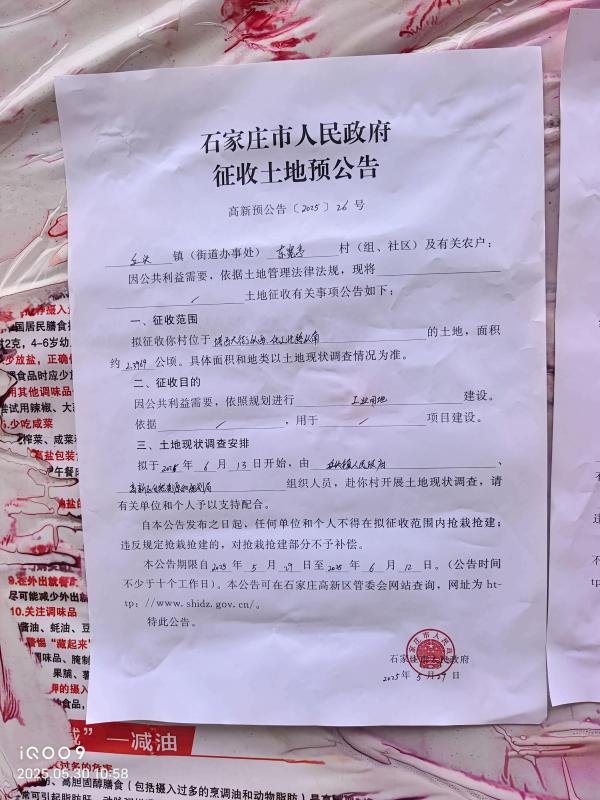 石家庄市人民政府
征收土地预公告
高新预公告〔2025〕26 号
镇（街道办事处） 村（组、社区）及有关农户：
因公共利益需要，依据土地管理法律法规，现将
/ 土地征收有关事项公告如下：
一、征收范围
拟征收你村位于 的土地，面积
约 2.3969 公顷。具体面积和地类以土地现状调查情况为准。
二、征收目的
因公共利益需要，依照规划进行 工业用地 建设。
依据 / ，用于 / 项目建设。
三、土地现状调查安排
拟于 2025 年 6 月 13 日开始，由 镇人民政府 、
高新区自然资源和规划局 组织人员，赴你村开展土地现状调查，请
有关单位和个人予以支持配合。
自本公告发布之日起，任何单位和个人不得在拟征收范围内抢栽抢建；
违反规定抢栽抢建的，对抢栽抢建部分不予补偿。
本公告期限自 2025 年 5 月 29 日至 2025 年 6 月 12 日。（公告时间
不少于十个工作日）。本公告可在石家庄高新区管委会网站查询，网址为 ht-
tp：//www.shidz.gov.cn/。
特此公告。
石家庄市人民政府
2025 年 5 月 29 日
国居民膳食
2克，4~6岁幼
少放盐，正确
用其他调味品
尝试用辣椒、大
少吃咸菜
榨菜、咸菜
高盐包装
9.在外出就餐
尽可能减少外出就
10.关注调味品
酱油、蚝油、豆
“藏起来
调味品、腌制
果脯、薯
的摄入
食品，
”一减油
过多的危害
高胆固醇膳食（包括摄入过多的烹调油和动物脂肪）是高
iQOO9
2025.05.30 10:58